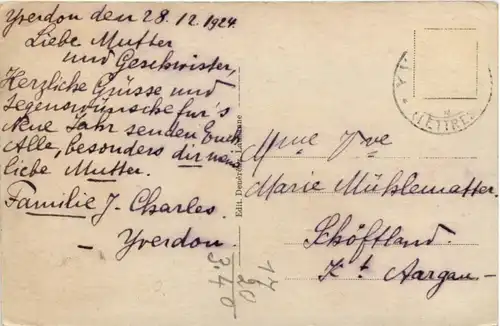 Yverdon den 28.12.1924.
Liebe Mutter
und Geschwister,
Herzliche Grüsse und
Segenswünsche für's
Neue Jahr senden Euch
Alle, besonders dir
liebe Mutter.
Familie J. Charles.
- Yverdon.
Edit. Denéréaz, Lausanne
Mme Vve
Marie Mühlematter.
Schöftland.
Kt. Aargau -
LETTRE
17
20
3.40